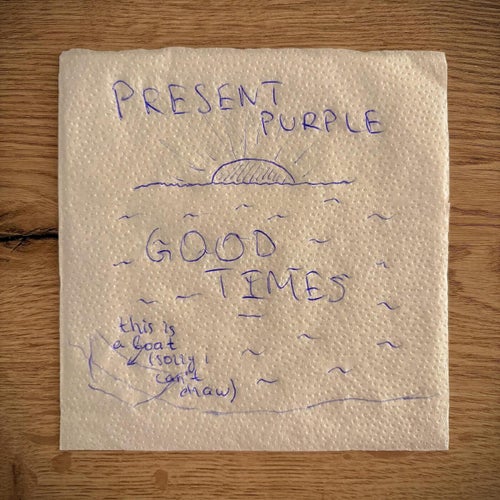 PRESENT
PURPLE
GOOD
TIMES
this is
a boat
(sorry i
can't
draw)